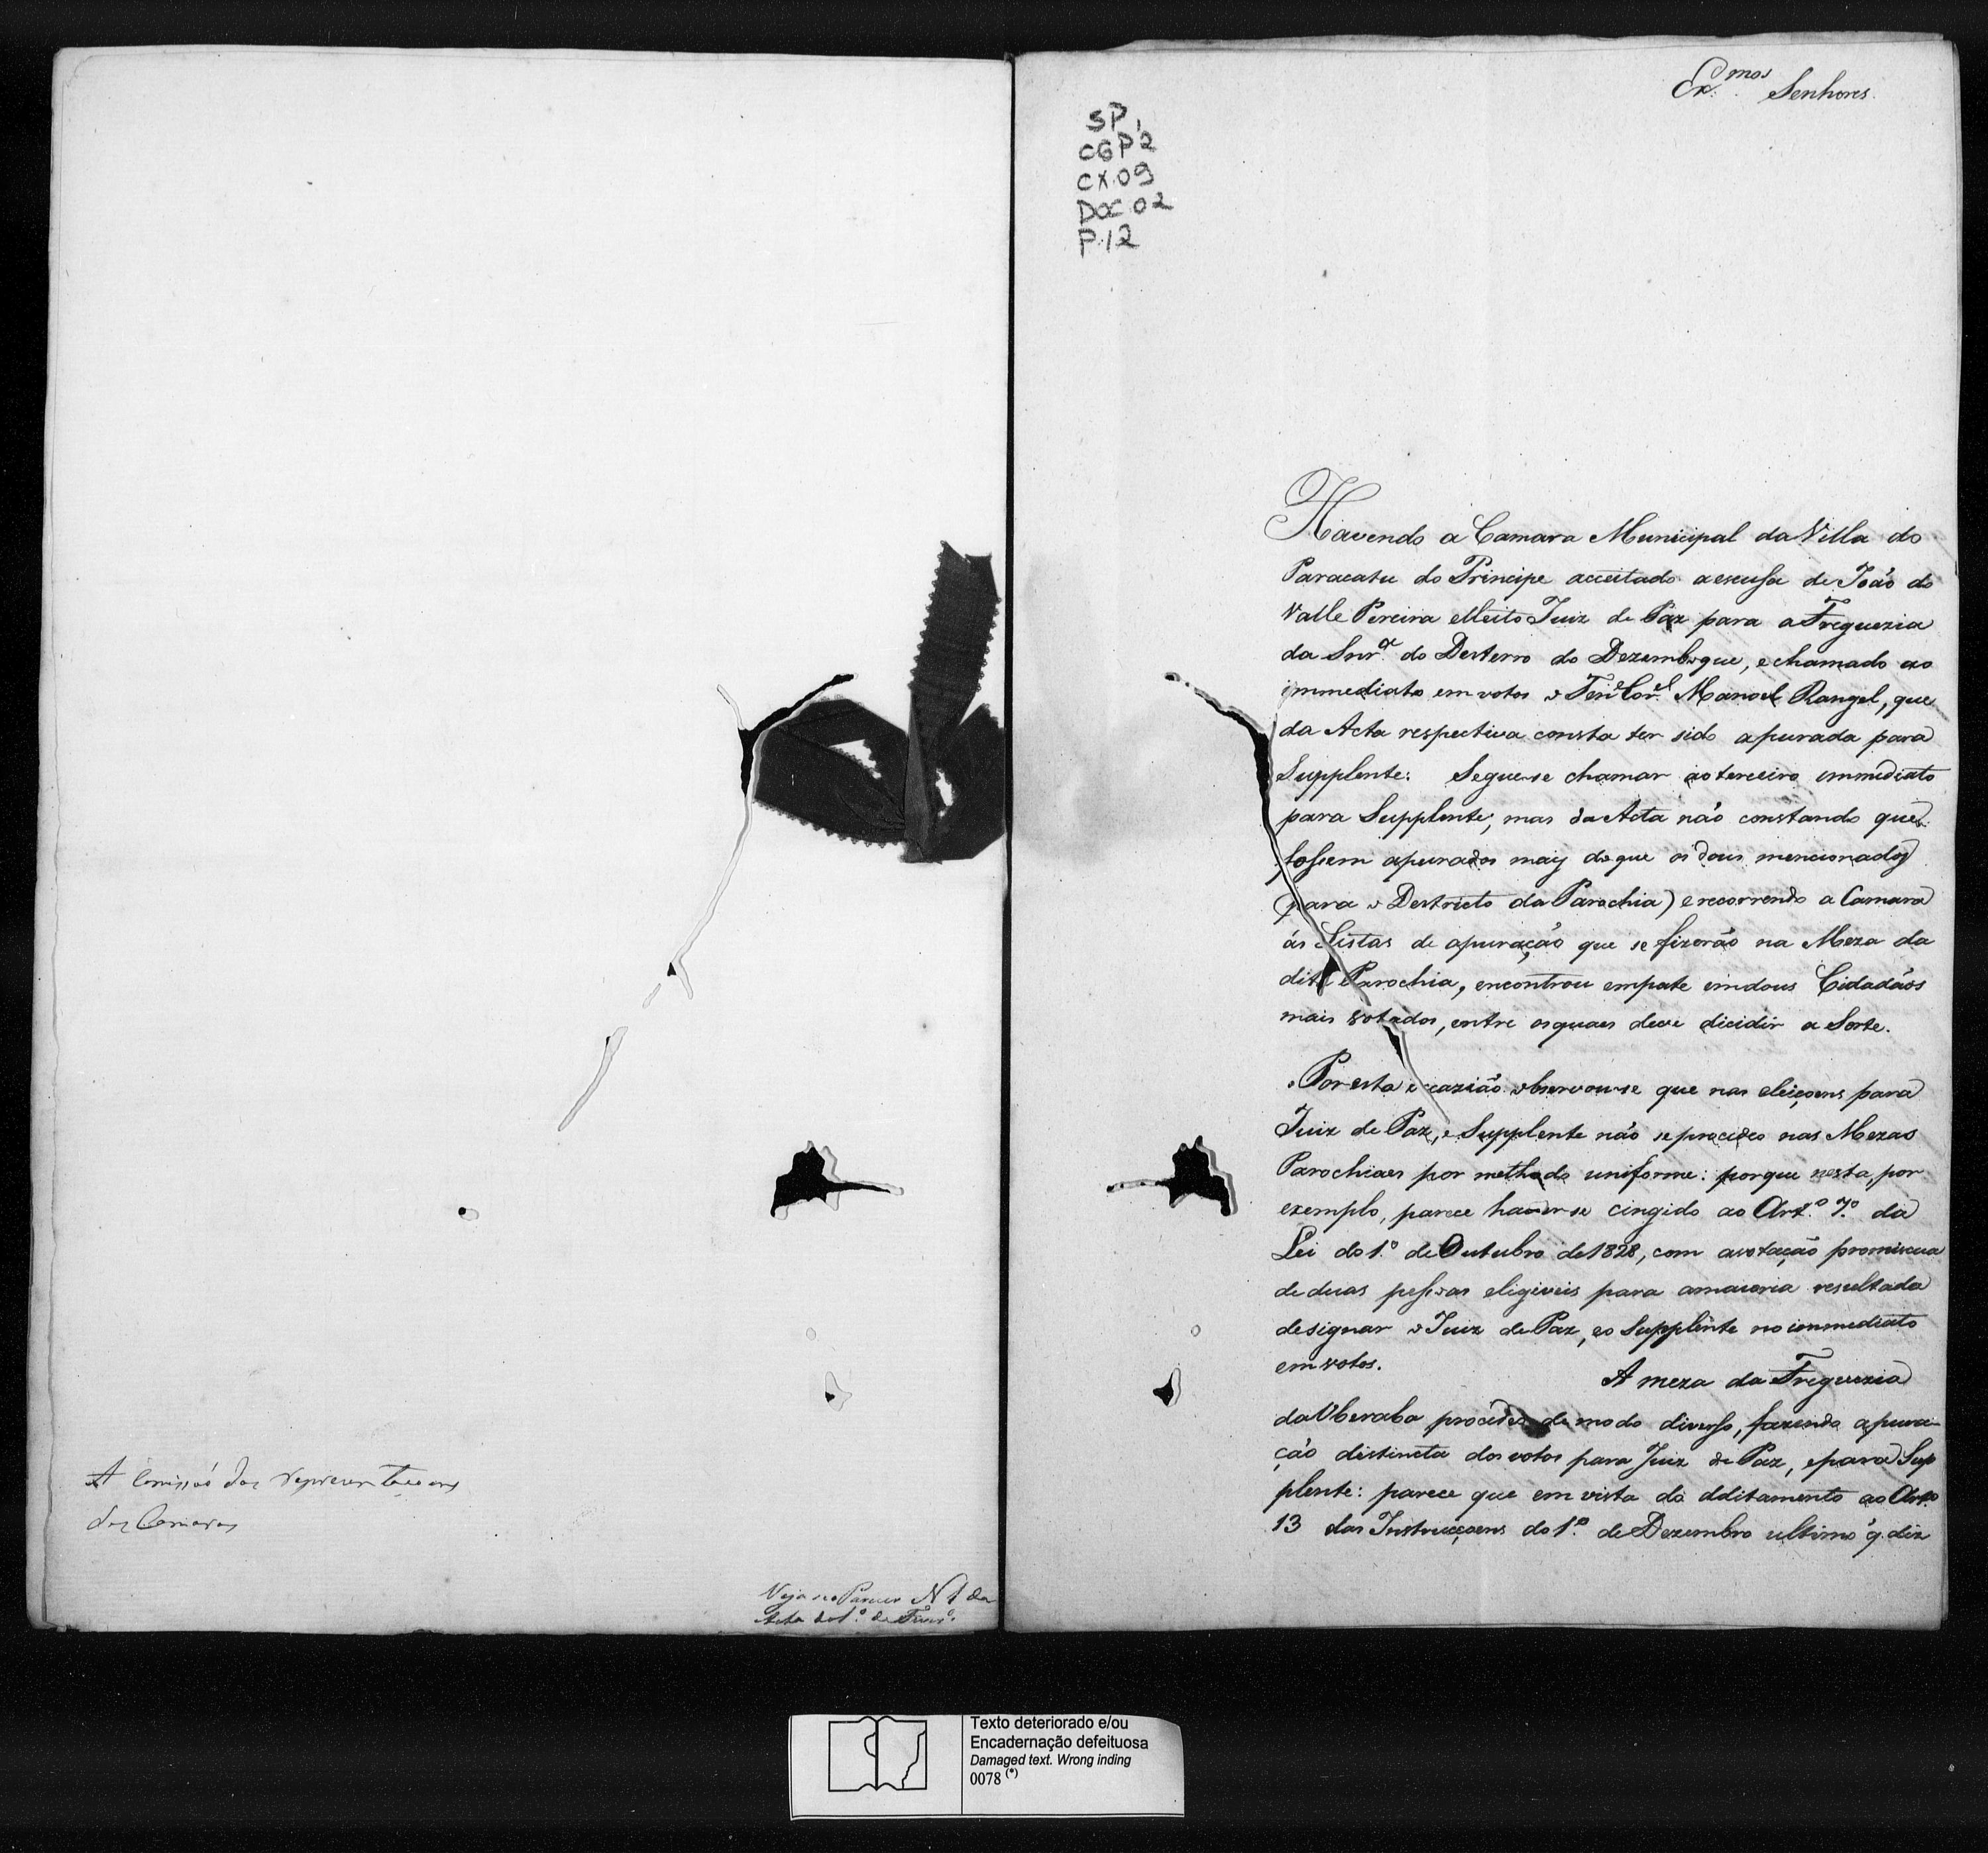 A Comissaõ das Representaçoens
das Camaras
Veja-se o Parecer N 1 da
Acta do 1.º de Fever.º
Ex.mos Senhores.
SP,
CGP2
CX.09
DOC.02
P.12
Havendo a Camara Municipal da Villa do
Paracatu do Principe acceitado a escusa de João do
Valle Pereira elleito Juiz de Paz para a Freguezia
da Snr.ª do Desterro do Dezemboque, e chamado ao
immediato em votos o Ten.e Cor.el Manoel Rangel, que
da Acta respectiva consta ter sido apurada para
Supplente: Segue-se chamar ao terceiro immediato
para Supplente; mas da Acta não constando que
fossem apurados mais do que os dous mencionados
(para o Destricto da Parochia) e recorrendo a Camara
ás Listas de apuração que se fizerão na Meza da
dita Parochia, encontrou empate em dous Cidadãos
mais votados, entre os quaes deve dicidir a Sorte.
Por esta occazião observou-se que nas eleiçoens para
Juiz de Paz, e Supplente não se procedeo nas Mezas
Parochiaes por methodo uniforme: porque nesta, por
exemplo, parece haver-se cingido ao Art.º 7.º da
Lei do 1.º de Outubro de 1828, com a votação promiscua
de duas pessoas eligiveis para a maioria resultada
designar o Juiz de Paz, e o Supplente no immediato
em votos.
A meza da Freguezia
da Uberaba procedeo de modo diverso, fazendo apura-
ção distincta dos votos para Juiz de Paz, e para Sup
plente: parece que em vista do dditamento ao Art.º
13 das Instrucçoens do 1.º de Dezembro ultimo q. diz
Texto deteriorado e/ou
Encadernação defeituosa
Damaged text. Wrong inding
0078 (*)